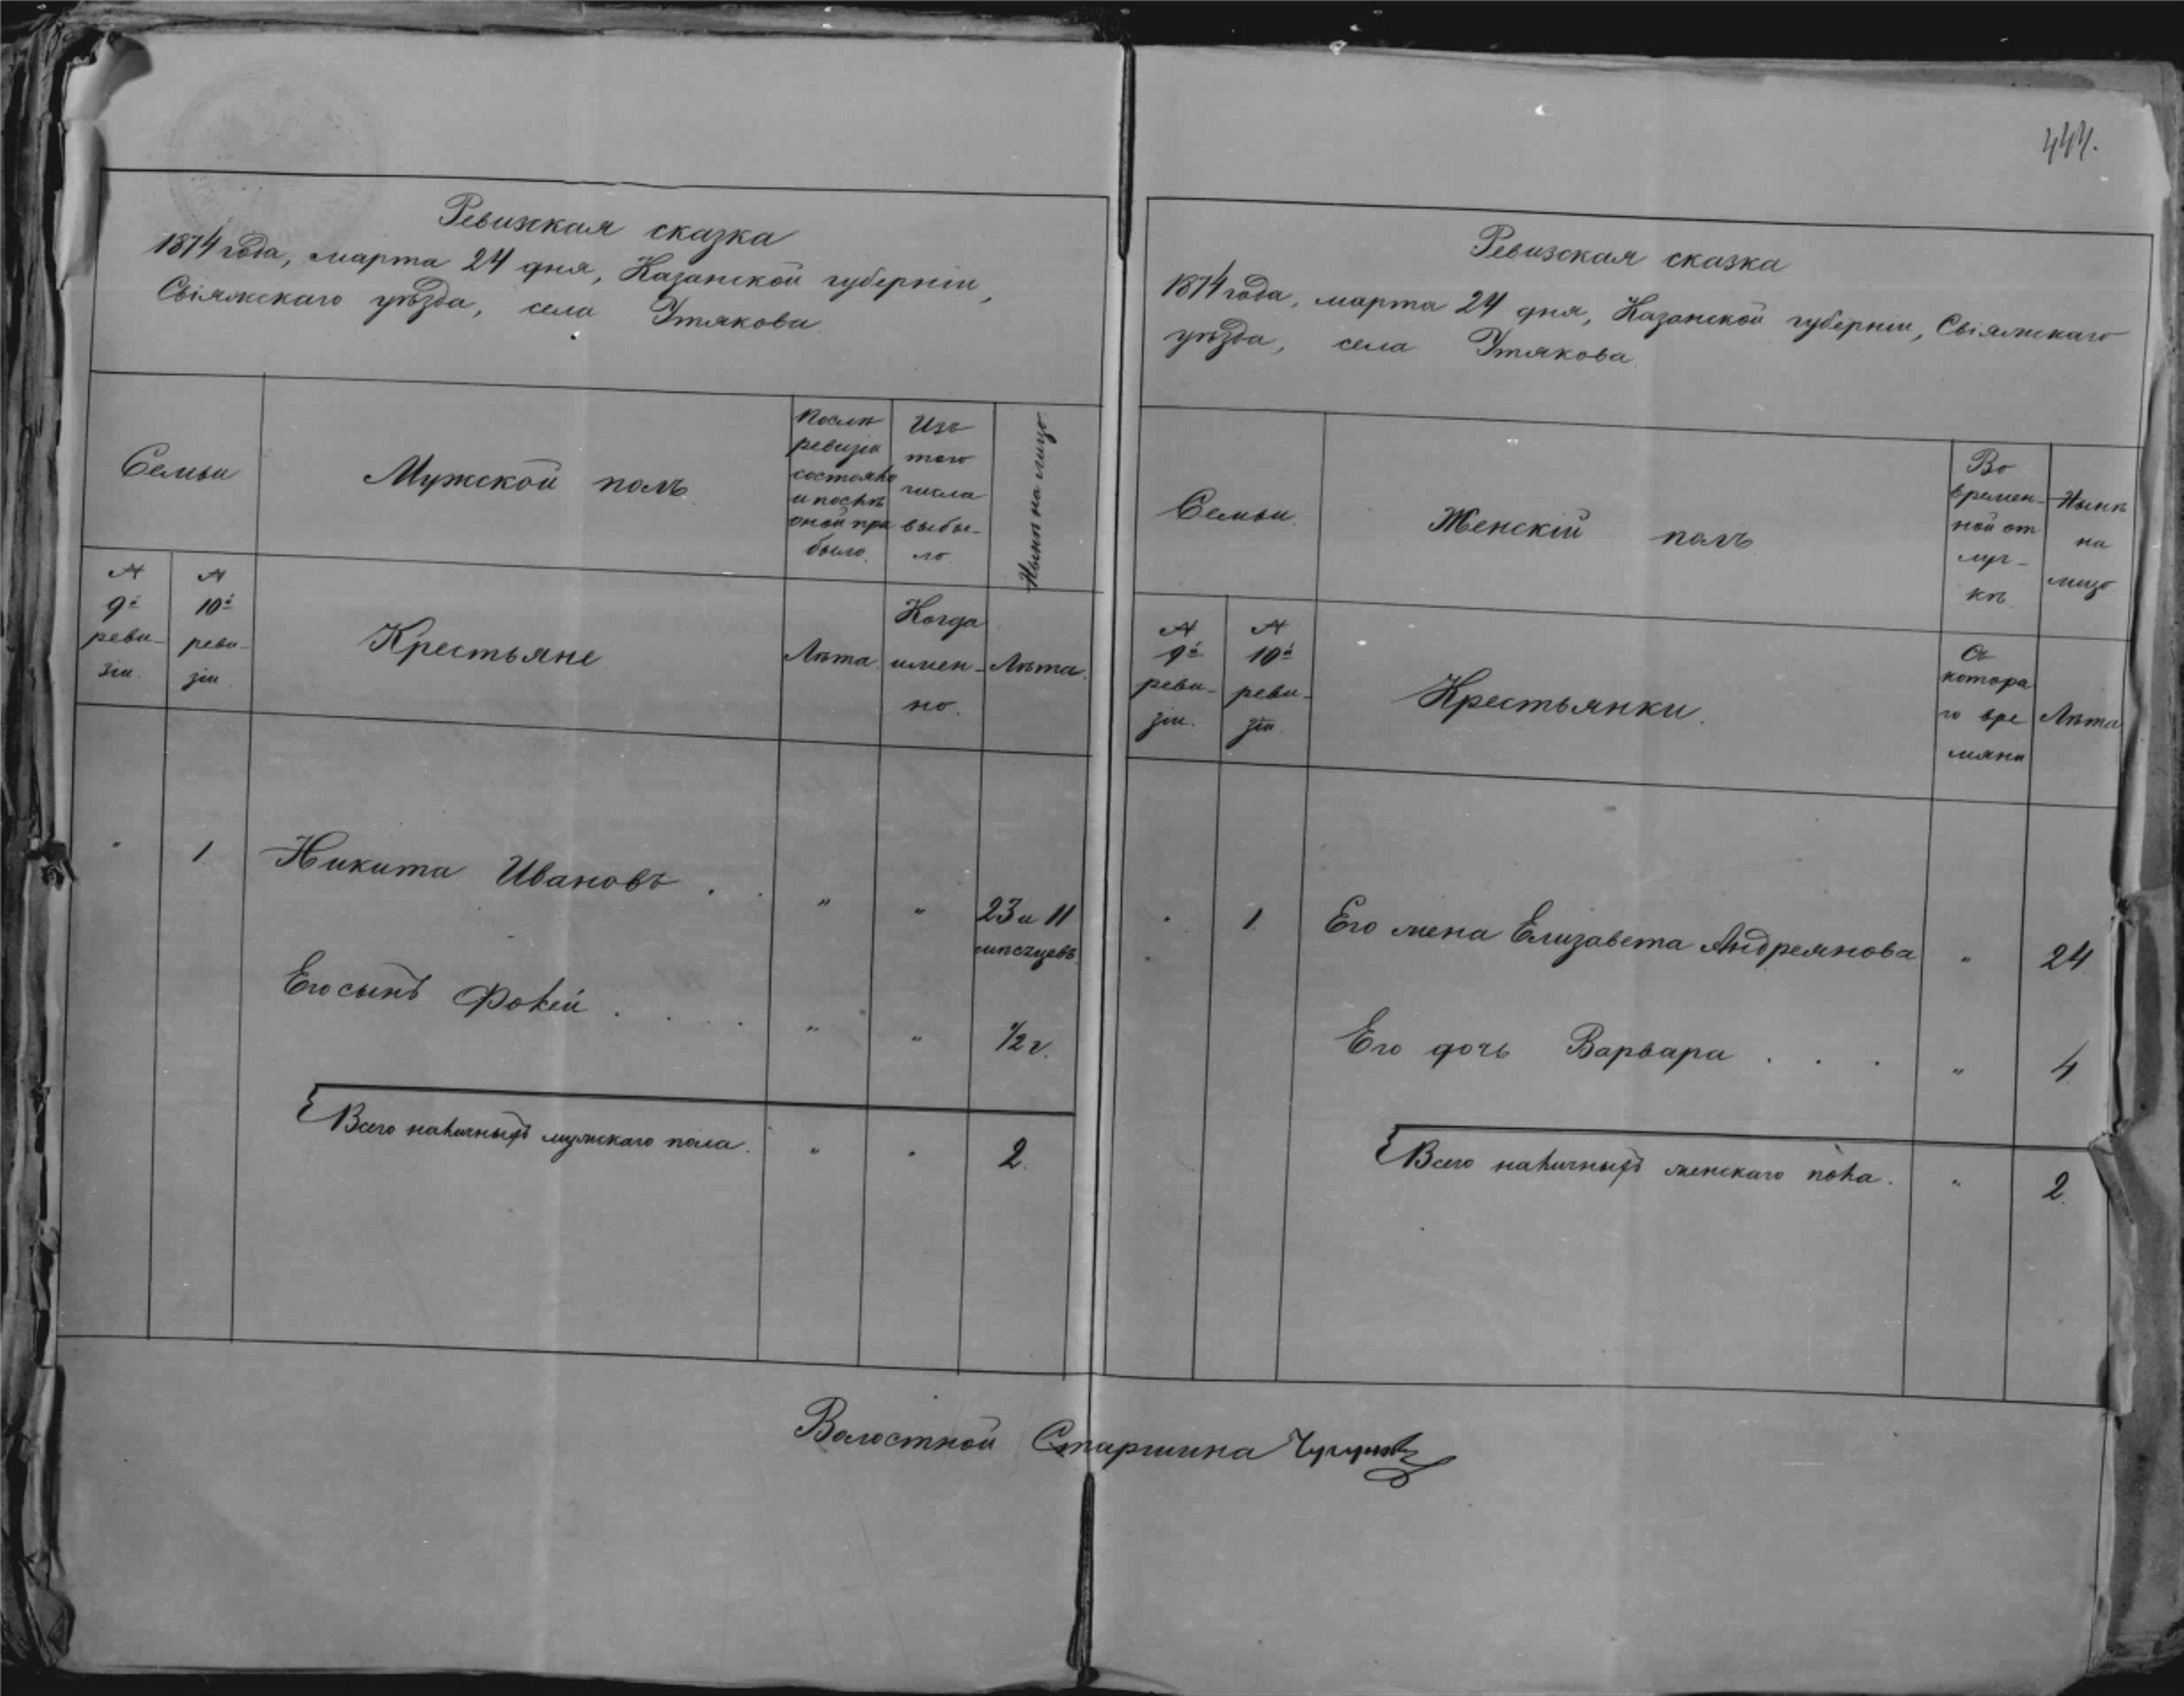 444.
Ревизкая сказка
1874 года, марта 24 дня, Казанской губерніи,
Свіяжскаго уѣзда, села Утякова.
Семьи
Мужской полъ
Послѣ
ревизіи
состояло
и послѣ
оной при
было.
Изъ
того
числа
выбы-
ло.
Нынѣ на лицо
№
9й
реви-
зіи.
№
10й
реви-
зіи
Крестьяне
Лѣта.
Когда
имен-
но.
Лѣта.
" 1 Никита Ивановъ . . " " 23 и 11
мѣсяцевъ
Его сынъ Фокей . . . . " " 1/2 г.
Всего наличныхъ мужскаго пола. " " 2.
Ревизская сказка
1874 года, марта 24 дня, Казанской губерніи, Свіяжскаго
уѣзда, села Утякова
Семьи.
Женскій полъ
Во
времен-
ной от
луч-
кѣ.
Нынѣ
на
лицо
№
9й
реви-
зіи.
№
10й
реви-
зіи
Крестьянки.
Съ
котора
го вре
мяни
Лѣта
" 1. Его жена Елизавета Андреянова " 24
Его дочь Варвара . . . " 4.
Всего наличныхъ женскаго пола. " 2.
Волостной Старшина Чугуновъ